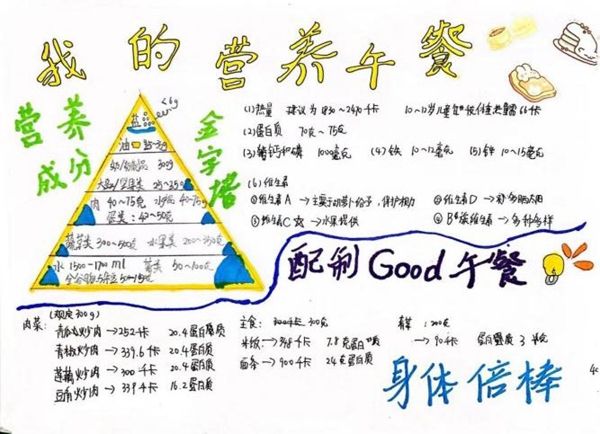 我的营养午餐
营养
成分
金字塔
盐 <6g
油 25~30g
奶/奶制品 300g
大豆/坚果类 25~35g
肉 40~75克 水产 40~75g
蛋类：40~50克
蔬菜类 300~500克 水果类 200~350克
水 1500~1700 ml 薯类 50~100克
(1)热量 建议为
(2)蛋白质 70克~75克
(3)钙和磷 1000毫克 (4)铁 10~12毫克 (5)锌 10~15毫克
(6)维生素
①维生素A → 主要 保护视力 ②维生素D → 太阳
③维生素C → 水果提供 ④B族维生素 → 多种多样
配制Good午餐
肉菜：(规定300g)
炒肉 → 252千卡 20.4蛋白质
青椒炒肉 → 339.6千卡 20.4蛋白质
炒肉 → 300千卡 20.4蛋白质
豆角炒肉 → 339千卡 16.2蛋白质
主食： 300克
米饭 → 348千卡 7.8克蛋白质
面条 → 900千卡 24克蛋白质
青菜：200克
→ 90千卡 蛋白质 3
身体倍棒